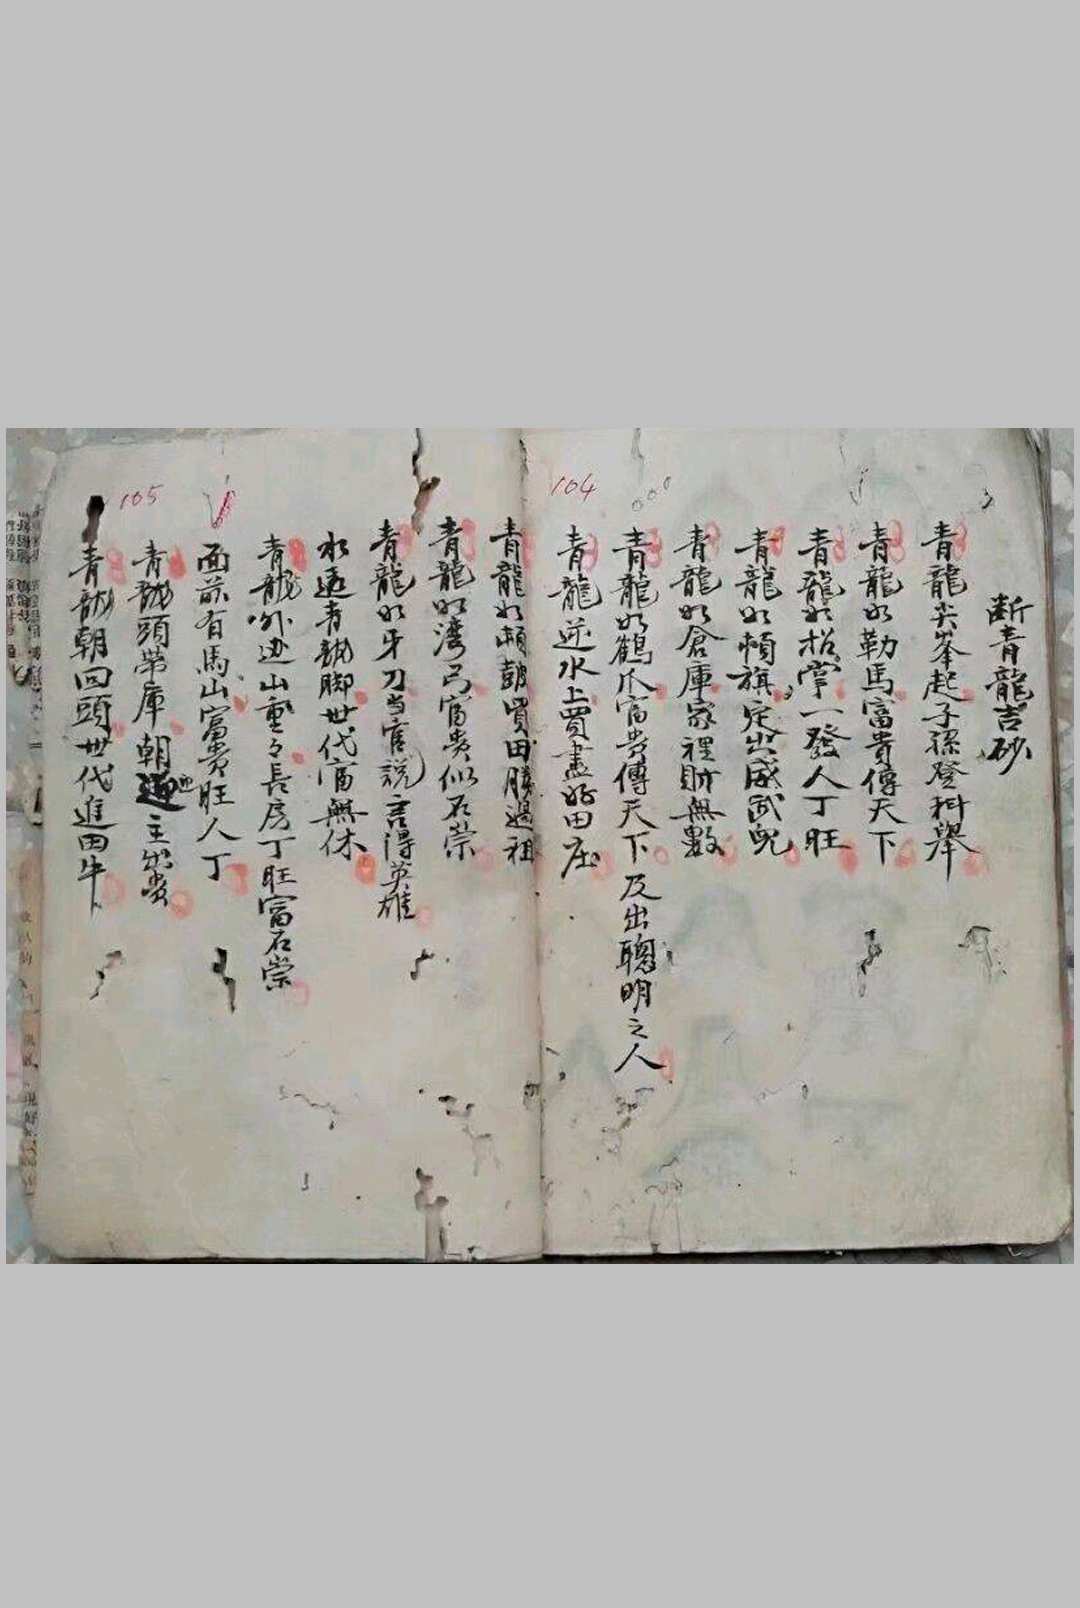 104
断青龍吉砂
青龍尖峯起子孫登科舉
青龍如勒馬富貴傳天下
青龍如招掌一發人丁旺
青龍如頓旗定出威武兒
青龍如倉庫家裡財無數
青龍如鶴爪富貴傳天下及出聰明之人
青龍逆水上買盡好田庄
105
青龍如頓鼓買田勝過祖
青龍如灣弓富貴似石崇
青龍如牙刀当官説言得英雄
水遶青龍脚世代富無休
青龍外边山重々長房丁旺富石崇
面前有馬山富貴旺人丁
青龍頭帶庫朝迎主出貴
青龍朝回頭世代進田牛